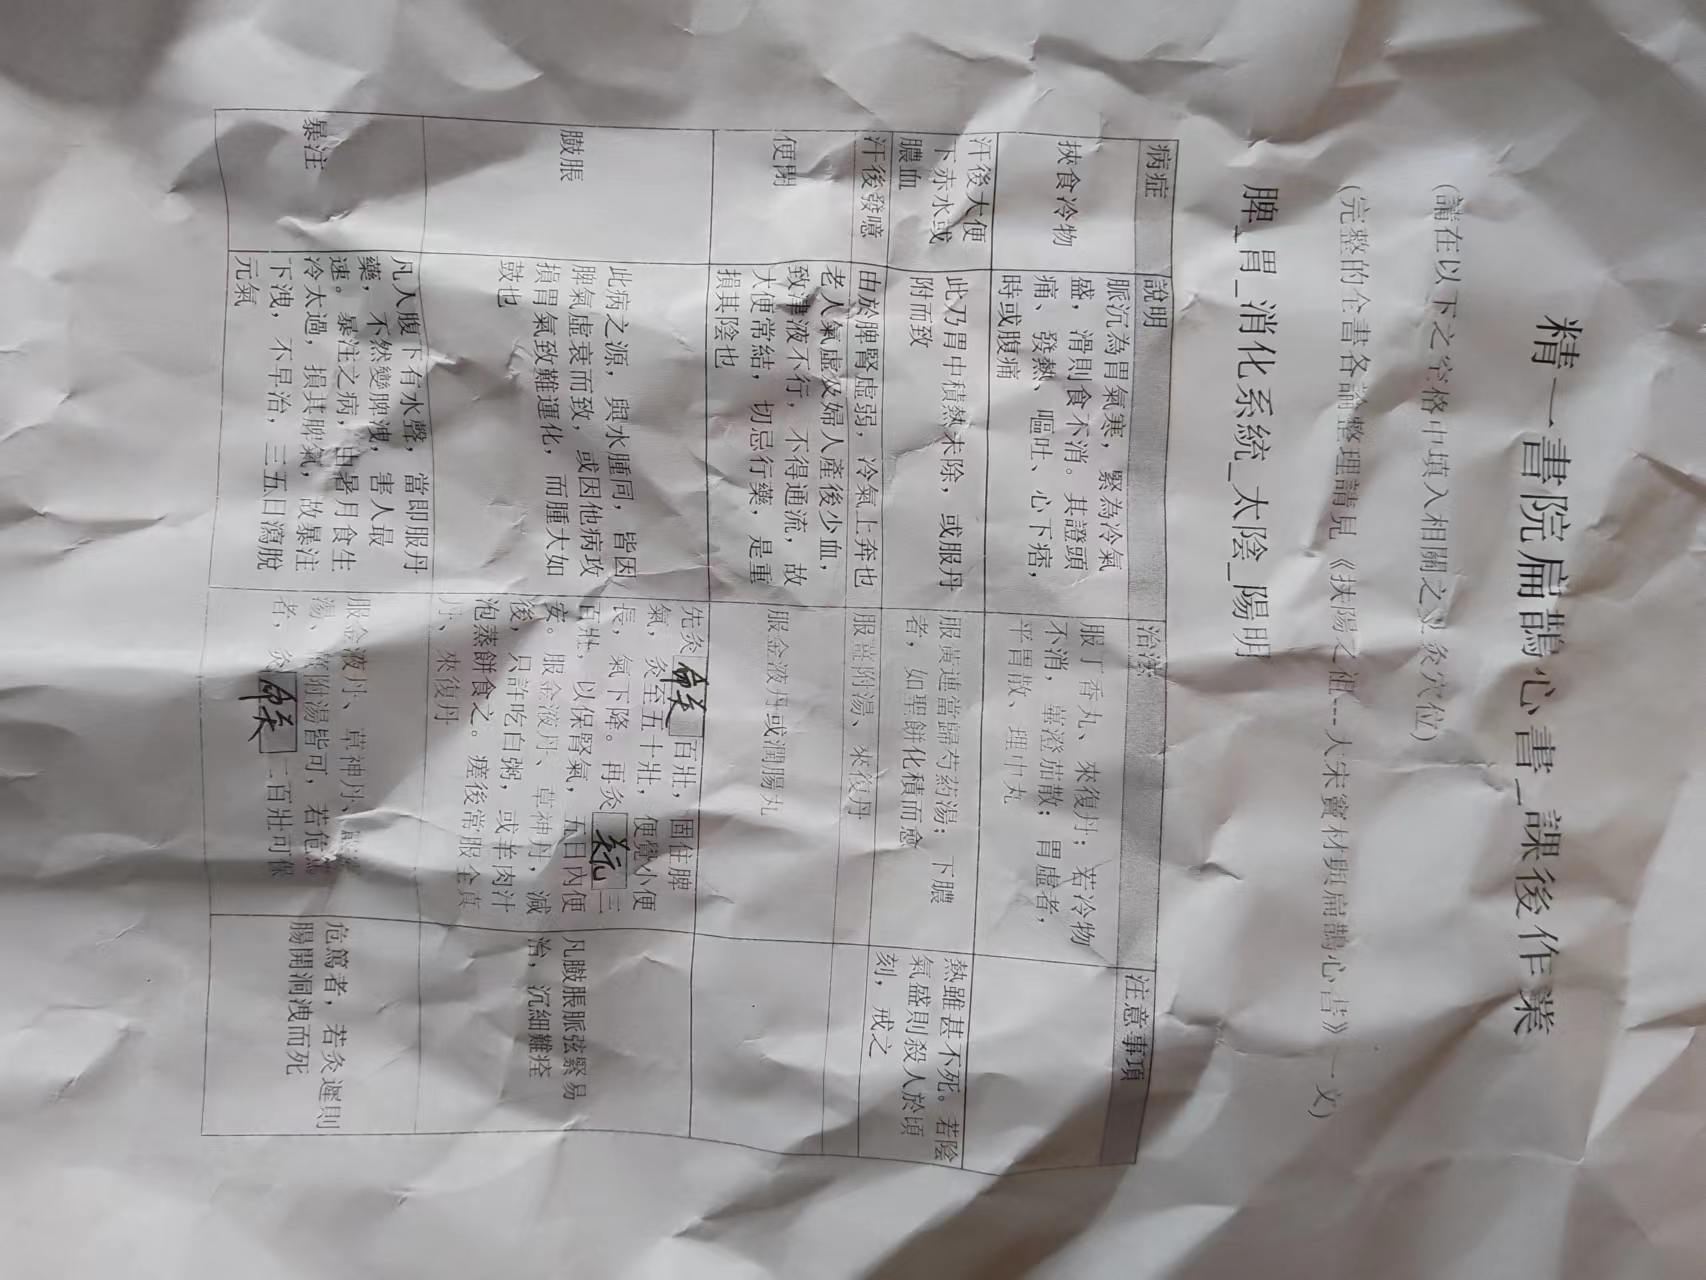 精一書院扁鵲心書_課後作業
(請在以下之空格中填入相關之艾灸穴位)
(完整的全書各論整理請見《扶陽之祖---大宋竇材與扁鵲心書》一文)
脾_胃_消化系統_太陰_陽明
病症
說明
治法
注意事項
挾食冷物
脈沉為胃氣寒，緊為冷氣
盛，滑則食不消。其證頭
痛、發熱、嘔吐、心下痞，
時或腹痛
服丁香丸、來復丹；若冷物
不消，蓽澄茄散；胃虛者，
平胃散、理中丸
汗後大便
下赤水或
膿血
此乃胃中積熱未除，或服丹
附而致
服黃連當歸芍葯湯；下膿
者，如聖餅化積而愈
熱雖甚不死。若陰
氣盛則殺人於頃
刻，戒之
汗後發噫
由於脾腎虛弱，冷氣上奔也
服薑附湯、來復丹
便閉
老人氣虛及婦人產後少血，
致津液不行，不得通流，故
大便常結，切忌行藥，是重
損其陰也
服金液丹或潤腸丸
臌脹
此病之源，與水腫同，皆因
脾氣虛衰而致，或因他病攻
損胃氣致難運化，而腫大如
鼓也
先灸命关百壯，固住脾
氣，灸至五十壯，便覺小便
長，氣下降。再灸关元三
百壯，以保腎氣，五日內便
安。服金液丹、草神丹，減
後，只許吃白粥，或羊肉汁
泡蒸餅食之。瘥後常服全真
丹、來復丹
凡臌脹脈弦緊易
治，沉細難痊
暴注
凡人腹下有水聲，當即服丹
藥，不然變脾洩，害人最
速。暴注之病，由暑月食生
冷太過，損其脾氣，故暴注
下洩，不早治，三五日瀉脫
元氣
服金液丹、草神丹、
湯、附湯皆可，若危篤
者，灸命关二百壯可保
危篤者，若灸遲則
腸開洞洩而死